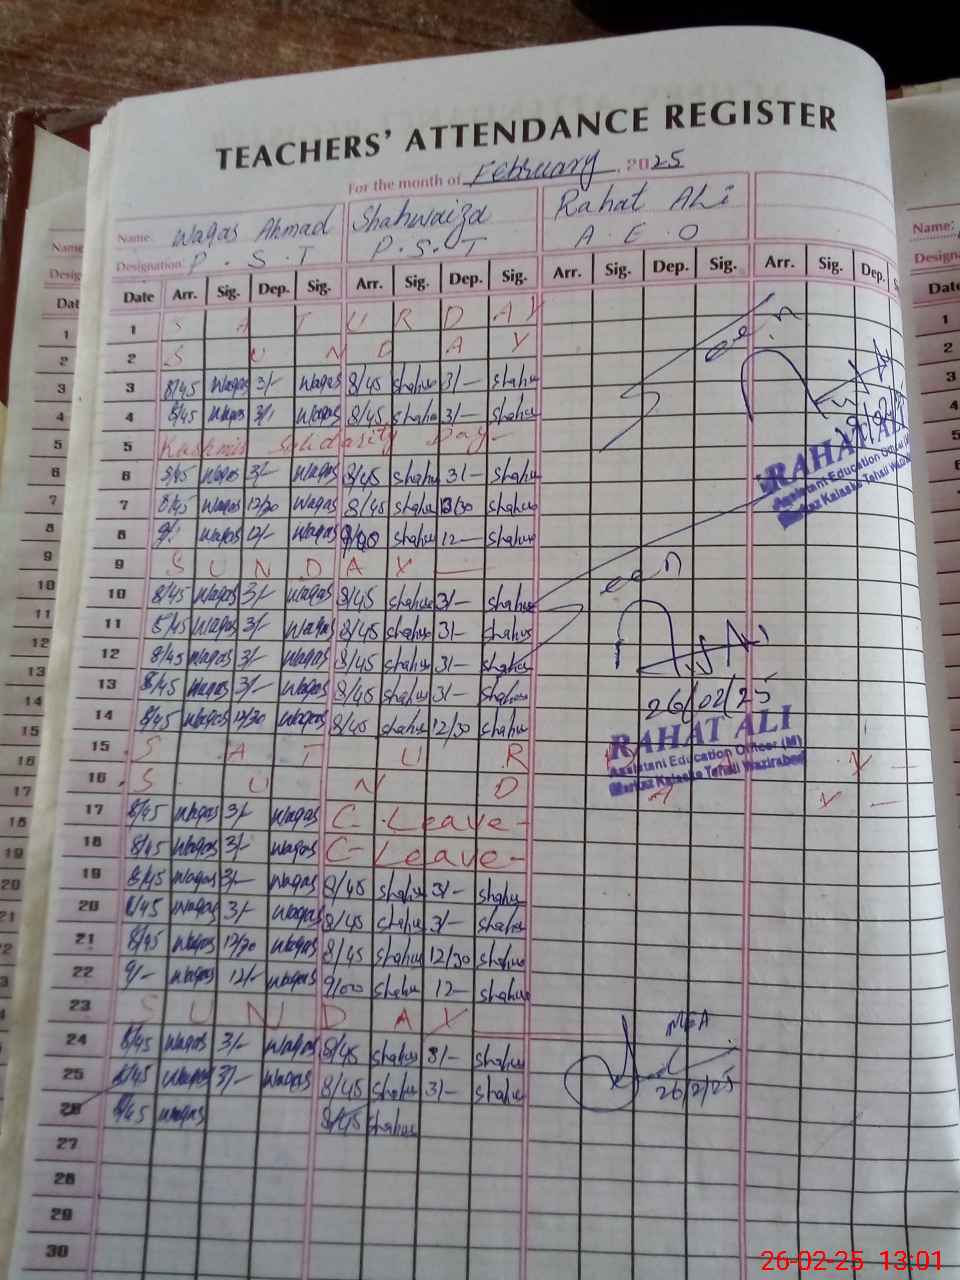 TEACHERS' ATTENDANCE REGISTER
For the month of February, 2025
Name: Waqas Ahmad Shahwaiza Rahat Ali
Designation: P.S.T P.S.T A.E.O
Date Arr. Sig. Dep. Sig. Arr. Sig. Dep. Sig. Arr. Sig. Dep. Sig. Arr. Sig. Dep.
1 S A T U R D A Y
2 S U N D A Y
3 8/45 Waqas 3/- Waqas 8/45 Shahw 3/- Shahw
4 8/45 Waqas 3/- Waqas 8/45 Shahw 3/- Shahw
5 Kashmir Solidarity Day-
6 8/45 Waqas 3/- Waqas 8/45 Shahw 3/- Shahw
7 8/45 Waqas 12/30 Waqas 8/45 Shahw 12/30 Shahw
8 9/- Waqas 12/- Waqas 9/00 Shahw 12- Shahw
9 S U N D A Y
10 8/45 Waqas 3/- Waqas 8/45 Shahw 3/- Shahw
11 8/45 Waqas 3/- Waqas 8/45 Shahw 3/- Shahw
12 8/45 Waqas 3/- Waqas 8/45 Shahw 3/- Shahw
13 8/45 Waqas 3/- Waqas 8/45 Shahw 3/- Shahw
14 8/45 Waqas 12/30 Waqas 8/45 Shahw 12/30 Shahw
15 S A T U R D A Y
16 S U N D A Y
17 8/45 Waqas 3/- Waqas C-Leave-
18 8/45 Waqas 3/- Waqas C-Leave-
19 8/45 Waqas 3/- Waqas 8/45 Shahw 3/- Shahw
20 8/45 Waqas 3/- Waqas 8/45 Shahw 3/- Shahw
21 8/45 Waqas 12/30 Waqas 8/45 Shahw 12/30 Shahw
22 9/- Waqas 12/- Waqas 9/00 Shahw 12- Shahw
23 S U N D A Y
24 8/45 Waqas 3/- Waqas 8/45 Shahw 3/- Shahw
25 8/45 Waqas 3/- Waqas 8/45 Shahw 3/- Shahw
26 8/45 Waqas 8/45 Shahw
27
28
29
30
Seen
RAHAT ALI
Assistant Education Officer (M)
Markaz Kalaske Tehsil Wazirabad
Seen
26/02/25
RAHAT ALI
Assistant Education Officer (M)
Markaz Kalaske Tehsil Wazirabad
MEA
26/2/25
26-02-25 13:01